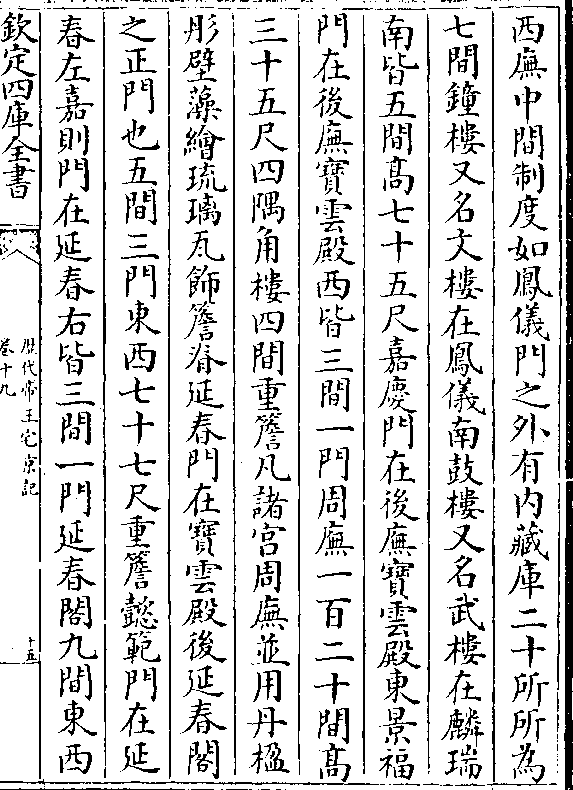 西廡中間制度如鳳儀門之外有内藏庫二十所所為
七間鐘樓又名文樓在鳳儀南鼓樓又名武樓在麟瑞
南皆五間髙七十五尺嘉慶門在後廡寶雲殿東景福
門在後廡寶雲殿西皆三間一門周廡一百二十間髙
三十五尺四隅角樓四間重簷凡諸宫周廡並用丹楹
彤壁藻繪琉璃瓦飾簷脊延春門在寶雲殿後延春閣
之正門也五間三門東西七十七尺重簷懿範門在延
春左嘉則門在延春右皆三間一門延春閣九間東西
欽定四庫全書
歷代帝王宅京記
卷十九
十五